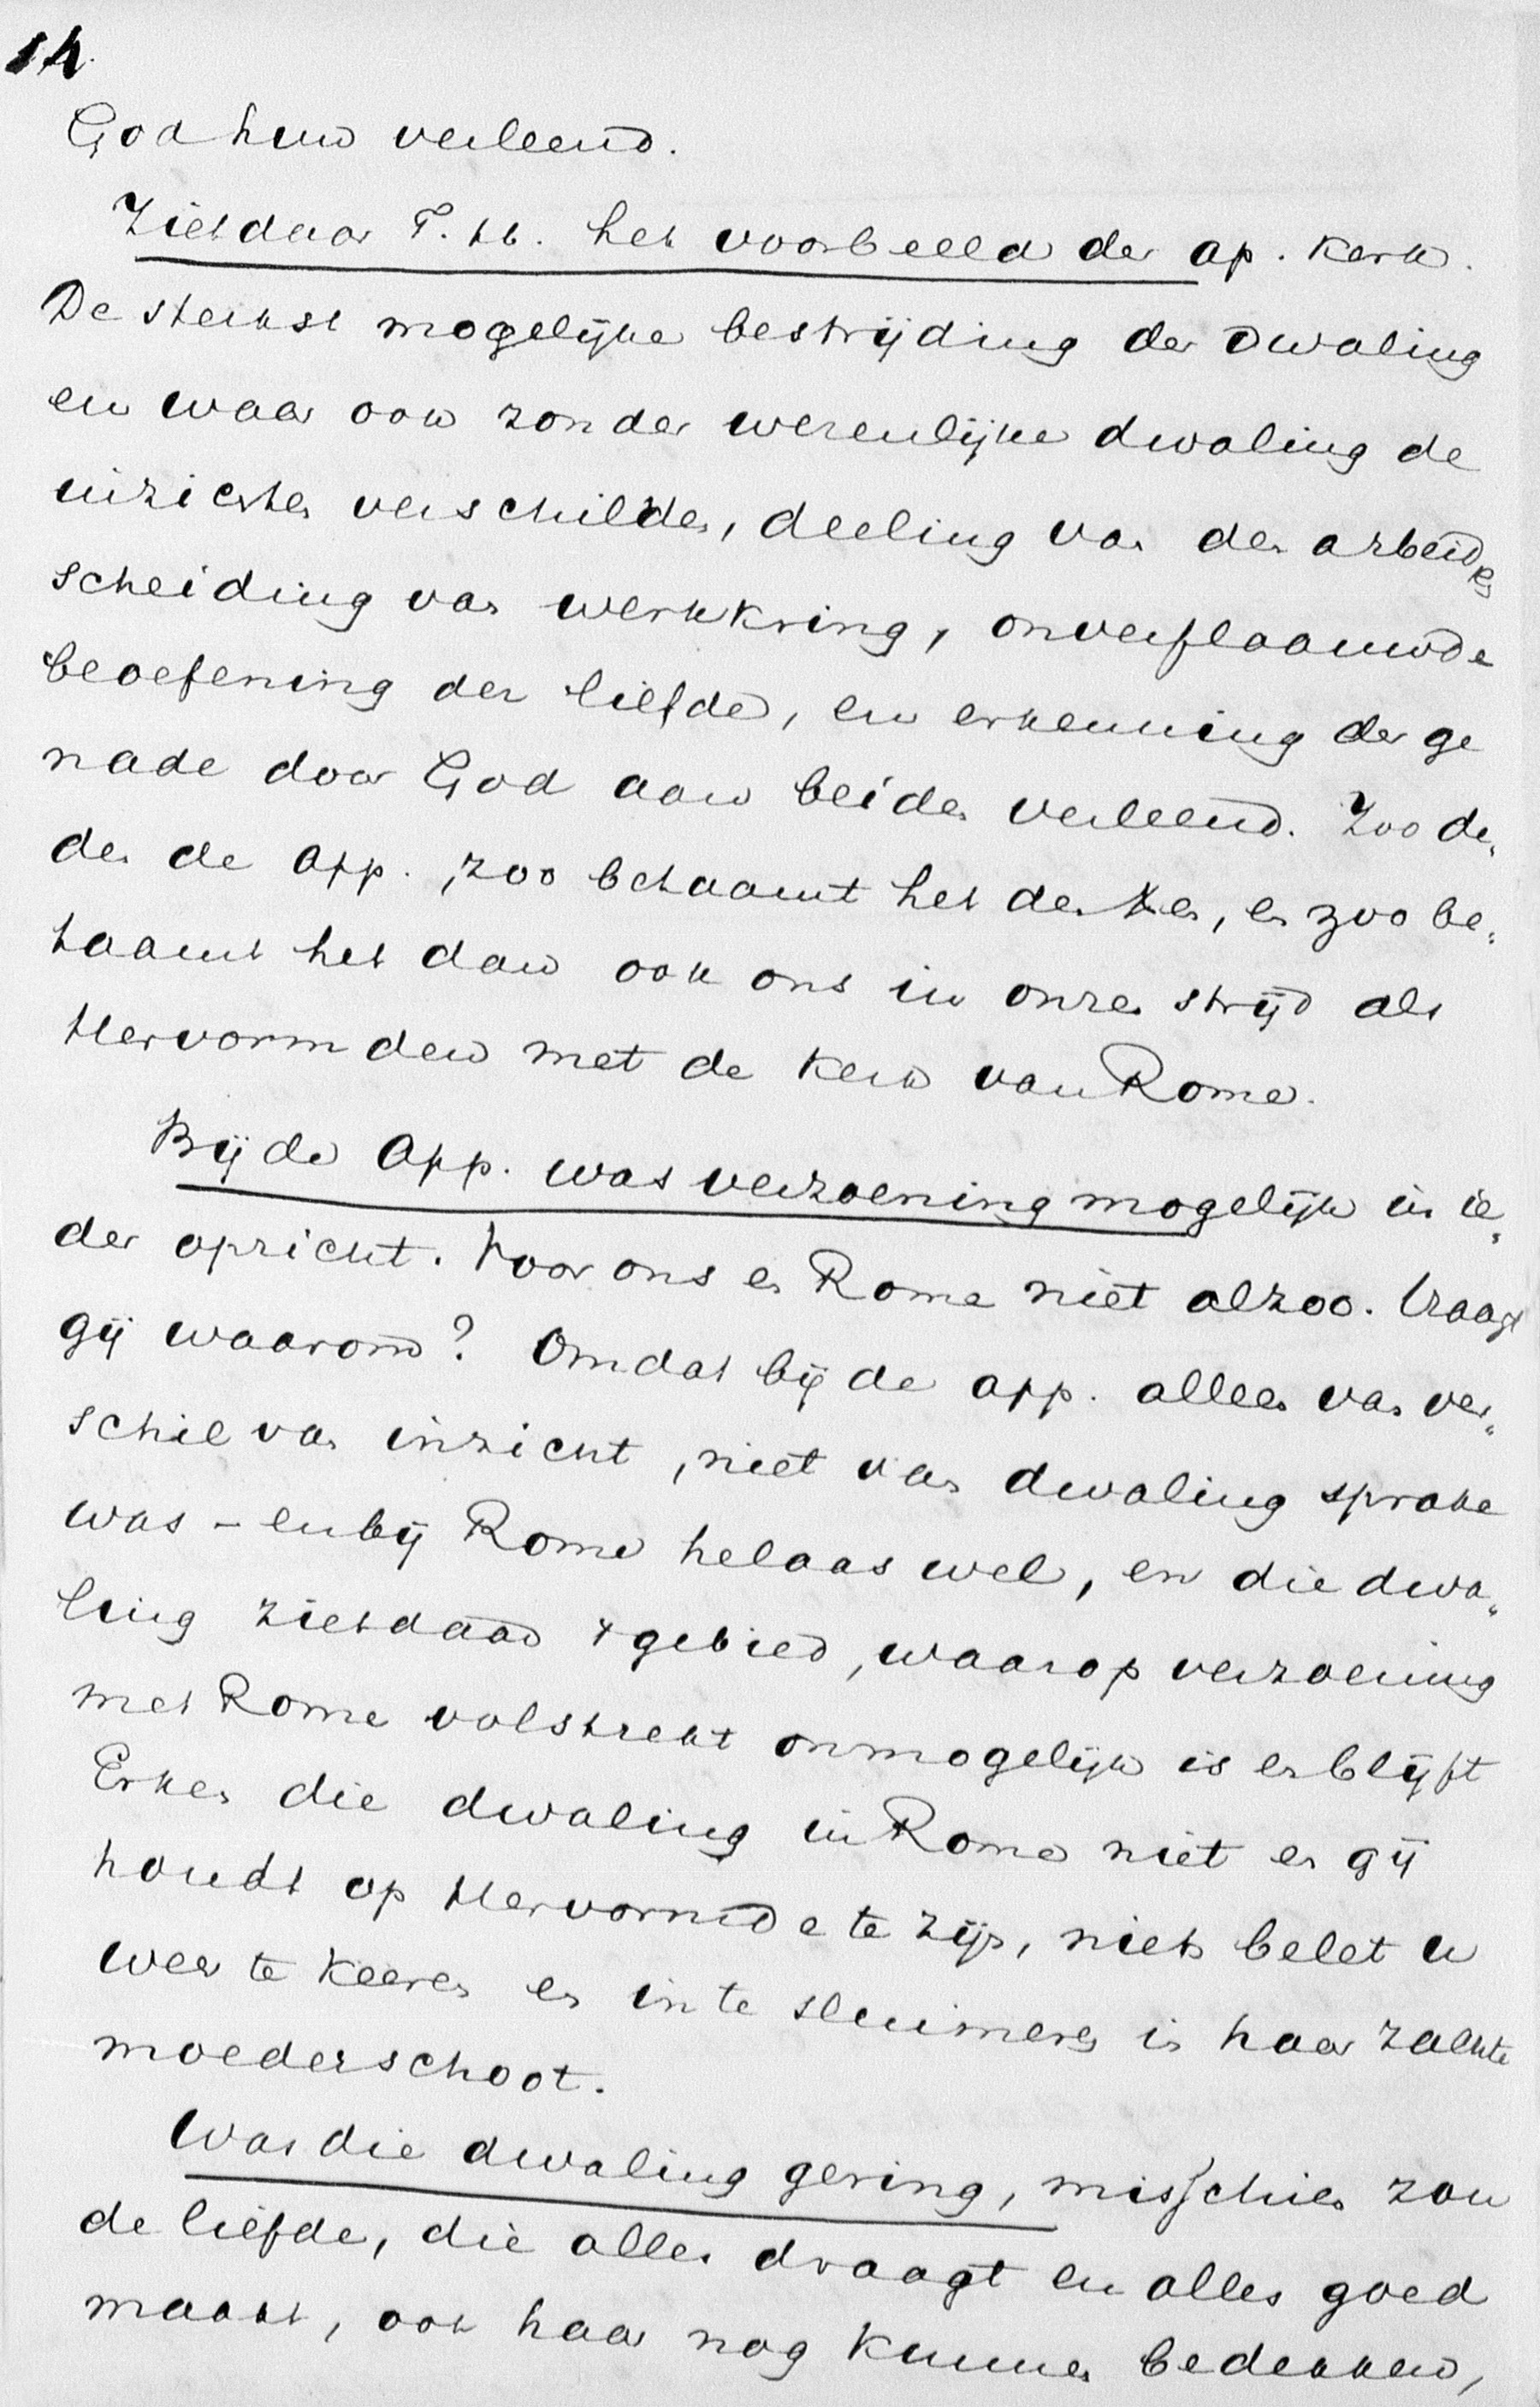 14.
God hun verleend.
Ziet daar T. H. het voorbeeld der ap. kerk.
De sterkst mogelijke bestrijding der dwaling
en waar ook zonder wezenlijke dwaling de
inzichten verschilden, deeling van den arbeid en
scheiding van werkkring, onverflaauwde
beoefening der liefde, en erkenning der ge
nade door God aan beiden verleend. Zoo de„
den de App., zoo betaamt het der kerk, en zoo be„
taamt het dan ook ons in onzen strijd als
Hervormden met de kerk van Rome.
Bij de App. was verzoening mogelijk in ie„
der opzicht. Voor ons en Rome niet alzoo. Vraagt
gij waarom? Omdat bij de app. alleen van ver„
schil van inzicht, niet van dwaling sprake
was – en bij Rome helaas wel, en die dwa„
ling ziet daar 't gebied, waarop verzoening
met Rome volstrekt onmogelijk is en blijft
Erken die dwaling in Rome niet en gij
houdt op Hervormde te zijn, niets belet u
weer te keeren en in te sluimeren in haar zachte
moederschoot.
Was die dwaling gering, misschien zou
de liefde, die alles draagt en alles goed
maakt, ook haar nog kunnen bedekken,